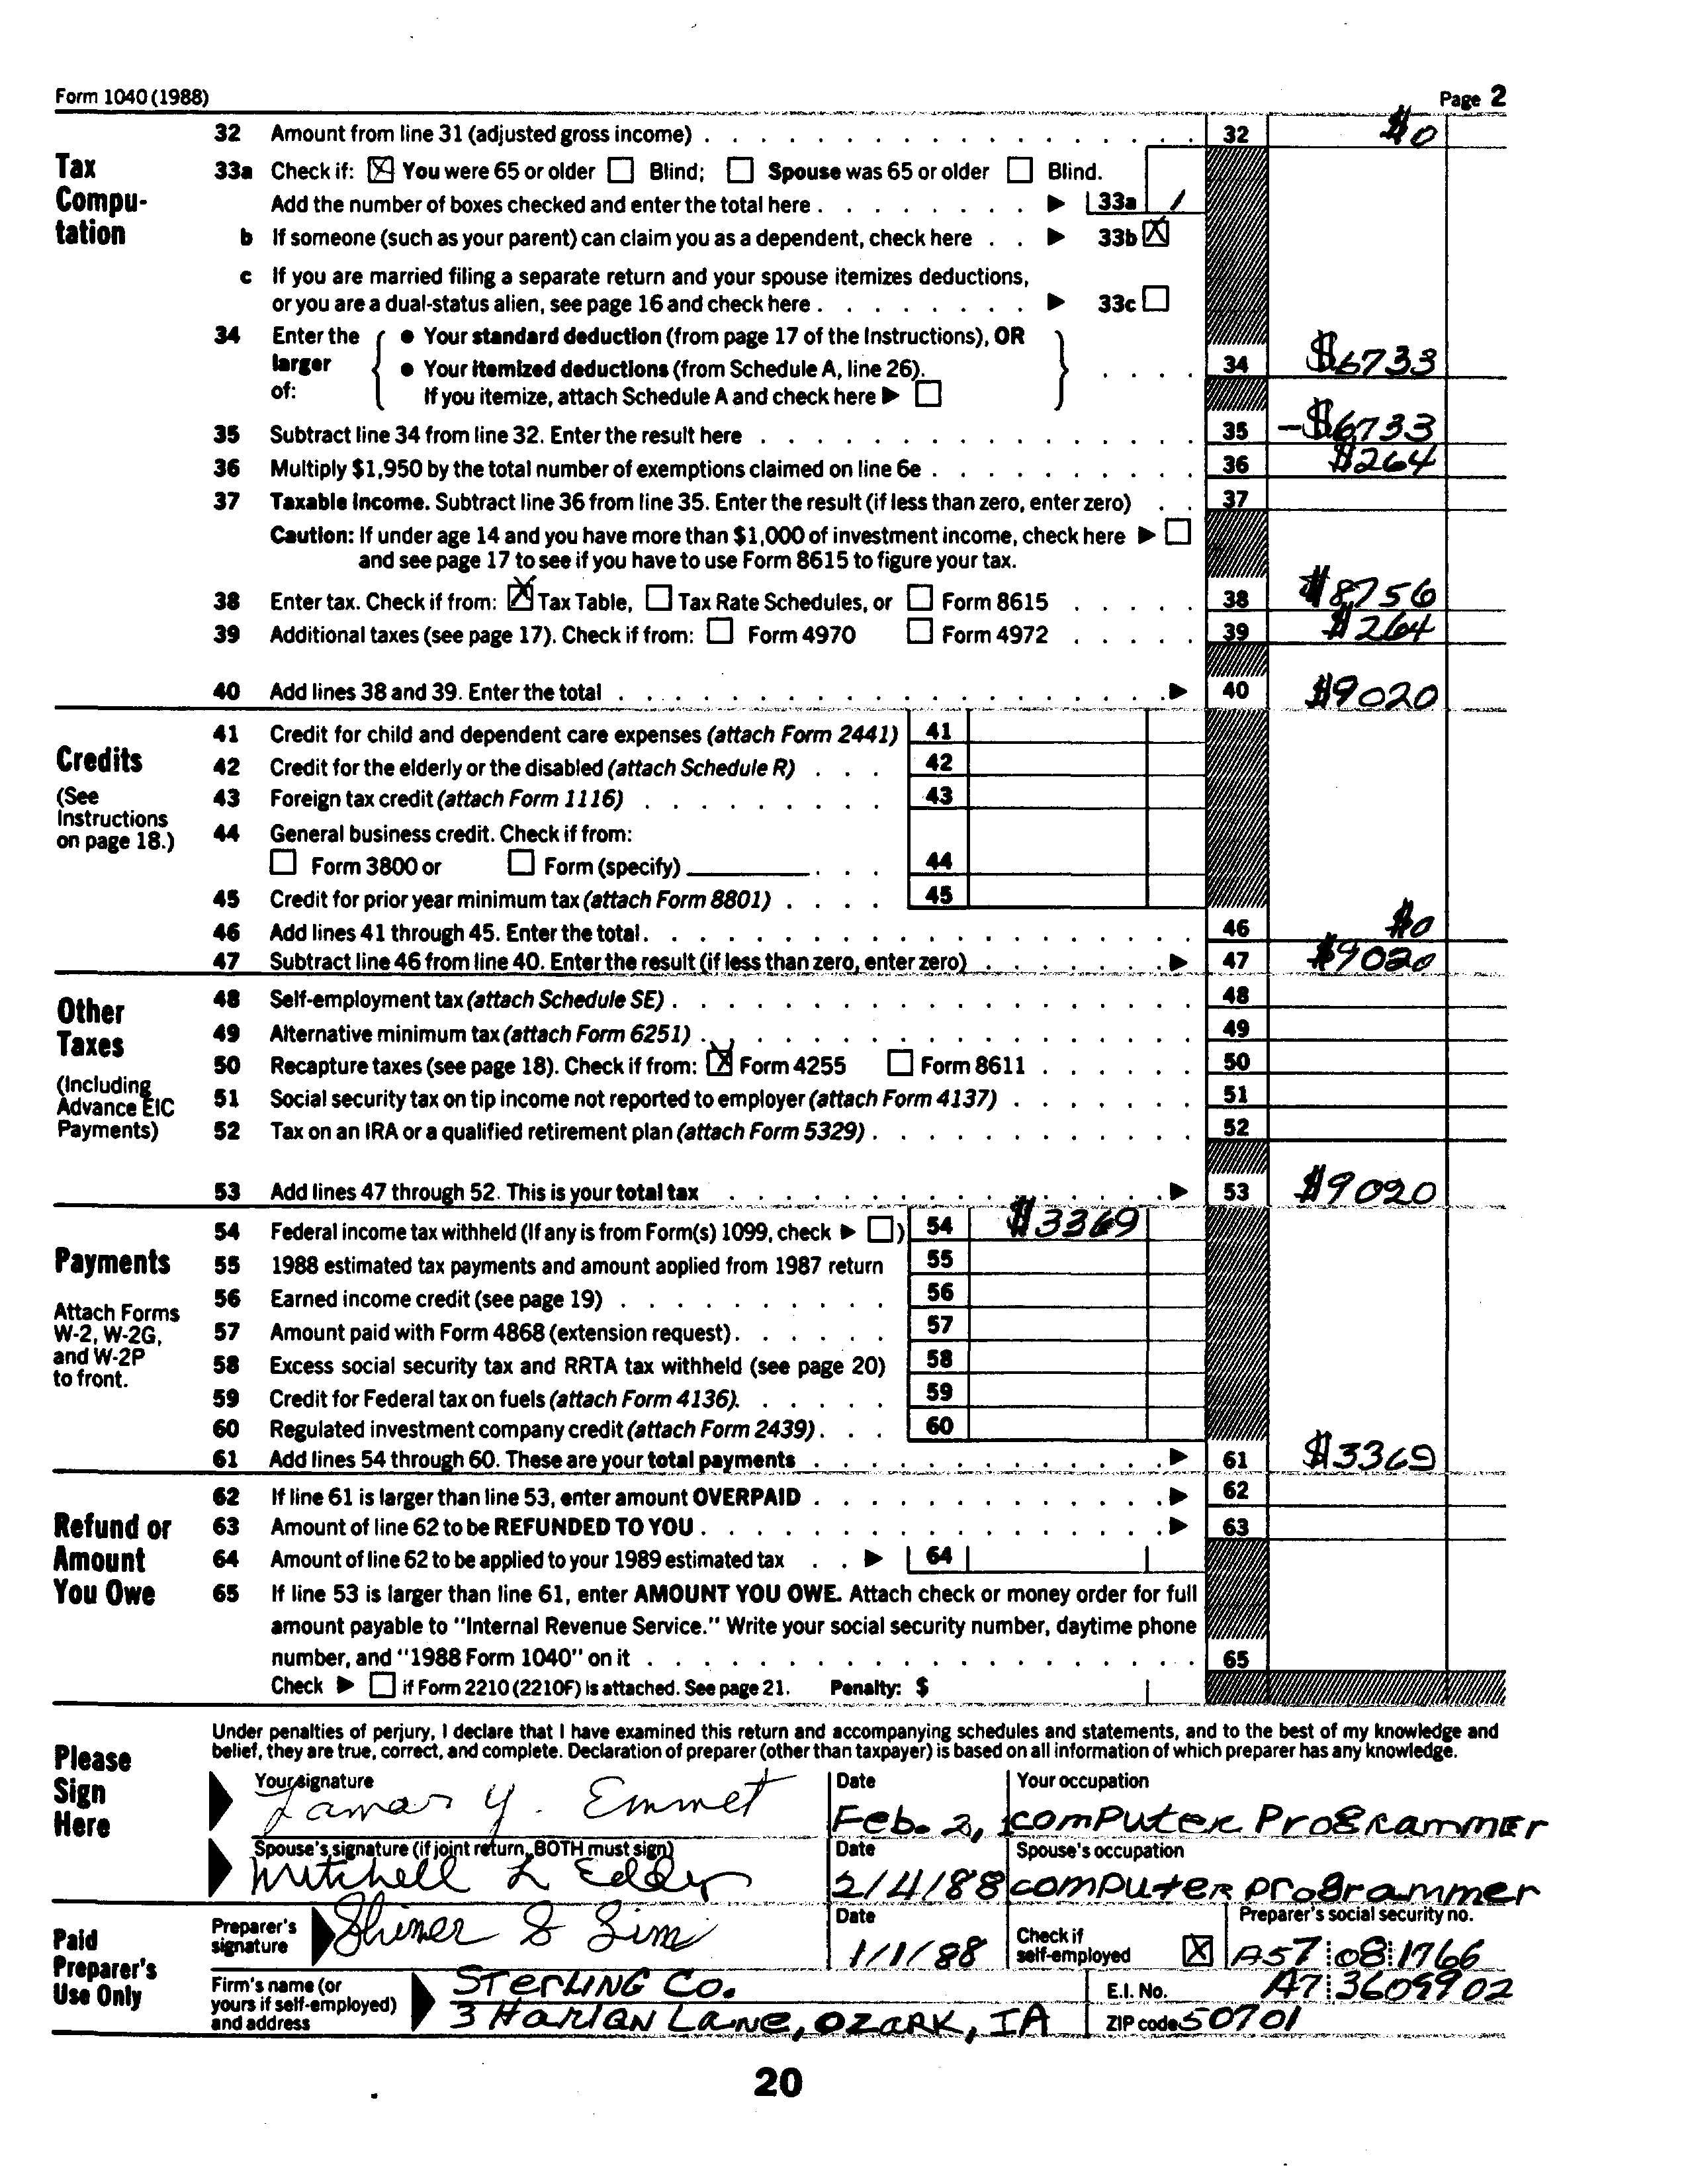 Form 1040 (1988) Page 2
32 Amount from line 31 (adjusted gross income) 32 $0
Tax Compu- tation
33a Check if: ☒ You were 65 or older ☐ Blind; ☐ Spouse was 65 or older ☐ Blind.
Add the number of boxes checked and enter the total here ▶ 33a 1
b If someone (such as your parent) can claim you as a dependent, check here ▶ 33b ☒
c If you are married filing a separate return and your spouse itemizes deductions,
or you are a dual-status alien, see page 16 and check here ▶ 33c ☐
34 Enter the larger of: { ● Your standard deduction (from page 17 of the Instructions), OR
● Your itemized deductions (from Schedule A, line 26). } 34 $6733
If you itemize, attach Schedule A and check here ▶ ☐
35 Subtract line 34 from line 32. Enter the result here 35 -$6733
36 Multiply $1,950 by the total number of exemptions claimed on line 6e 36 $264
37 Taxable income. Subtract line 36 from line 35. Enter the result (if less than zero, enter zero) 37
Caution: If under age 14 and you have more than $1,000 of investment income, check here ▶ ☐
and see page 17 to see if you have to use Form 8615 to figure your tax.
38 Enter tax. Check if from: ☒ Tax Table, ☐ Tax Rate Schedules, or ☐ Form 8615 38 $8756
39 Additional taxes (see page 17). Check if from: ☐ Form 4970 ☐ Form 4972 39 $264
40 Add lines 38 and 39. Enter the total ▶ 40 $9020
Credits
(See Instructions on page 18.)
41 Credit for child and dependent care expenses (attach Form 2441) 41
42 Credit for the elderly or the disabled (attach Schedule R) 42
43 Foreign tax credit (attach Form 1116) 43
44 General business credit. Check if from:
☐ Form 3800 or ☐ Form (specify) 44
45 Credit for prior year minimum tax (attach Form 8801) 45
46 Add lines 41 through 45. Enter the total 46 $0
47 Subtract line 46 from line 40. Enter the result (if less than zero, enter zero) ▶ 47 $9020
Other Taxes
(Including Advance EIC Payments)
48 Self-employment tax (attach Schedule SE) 48
49 Alternative minimum tax (attach Form 6251) 49
50 Recapture taxes (see page 18). Check if from: ☒ Form 4255 ☐ Form 8611 50
51 Social security tax on tip income not reported to employer (attach Form 4137) 51
52 Tax on an IRA or a qualified retirement plan (attach Form 5329) 52
53 Add lines 47 through 52. This is your total tax ▶ 53 $9020
Payments
Attach Forms W-2, W-2G, and W-2P to front.
54 Federal income tax withheld (If any is from Form(s) 1099, check ▶ ☐) 54 $3369
55 1988 estimated tax payments and amount applied from 1987 return 55
56 Earned income credit (see page 19) 56
57 Amount paid with Form 4868 (extension request) 57
58 Excess social security tax and RRTA tax withheld (see page 20) 58
59 Credit for Federal tax on fuels (attach Form 4136) 59
60 Regulated investment company credit (attach Form 2439) 60
61 Add lines 54 through 60. These are your total payments ▶ 61 $3369
Refund or Amount You Owe
62 If line 61 is larger than line 53, enter amount OVERPAID ▶ 62
63 Amount of line 62 to be REFUNDED TO YOU ▶ 63
64 Amount of line 62 to be applied to your 1989 estimated tax ▶ 64
65 If line 53 is larger than line 61, enter AMOUNT YOU OWE. Attach check or money order for full
amount payable to "Internal Revenue Service." Write your social security number, daytime phone
number, and "1988 Form 1040" on it 65
Check ▶ ☐ if Form 2210 (2210F) is attached. See page 21. Penalty: $
Please Sign Here
Under penalties of perjury, I declare that I have examined this return and accompanying schedules and statements, and to the best of my knowledge and
belief, they are true, correct, and complete. Declaration of preparer (other than taxpayer) is based on all information of which preparer has any knowledge.
Your signature Date Your occupation
Lamar Y. Emmet Feb. 2, computer Programmer
Spouse's signature (if joint return, BOTH must sign) Date Spouse's occupation
Mitchell L Eddy 2/4/88 computer programmer
Paid Preparer's Use Only
Preparer's signature Date Check if self-employed ☒ Preparer's social security no.
Shiner & Sim 1/1/88 A57 08 1766
Firm's name (or yours if self-employed) and address
Sterling Co. E.I. No. A7 3609902
3 Harlan Lane, Ozark, IA ZIP code 50701
20